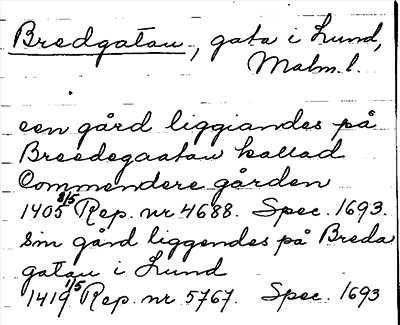 Bredgatan, gata i Lund,
Malm. l.
een gård liggiandes på
Breedegaatan kallad
Commendere gården
1405 8/5 Rep. nr 4688. Spec. 1693.
Sin gård liggendes på Breda
gatan i Lund
1419 1/5 Rep. nr 5767. Spec. 1693